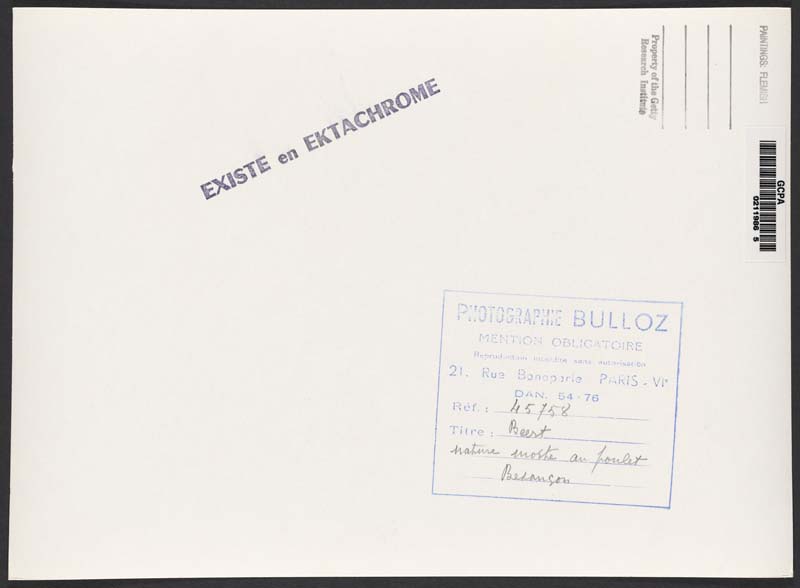 EXISTE en EKTACHROME
Property of the Getty
Research Institute
PAINTINGS: FLEMISH
GCPA
0211986 5
PHOTOGRAPHIE BULLOZ
MENTION OBLIGATOIRE
Reproduction interdite sans autorisation
21, Rue Bonaparte PARIS-VIe
DAN. 54-76
Réf.: 45758
Titre: Beert
nature morte au poulet
Besançon